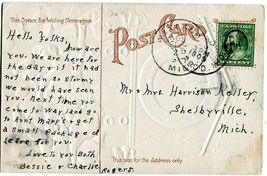 This Space for Writing Messages
POST CARD
Hello Folks,
How are
you. We are here for
the day & if it had
not been so stormy
we would have seen
you. Next time you
come to Wayland go
to Aunt Mary's & get
a small Package I
leave for you.
Love to You Both
Bessie & Charlie
Rogers.
Mr & Mrs. Harrison Kelley,
Shelbyville,
Mich.
This side for the Address only